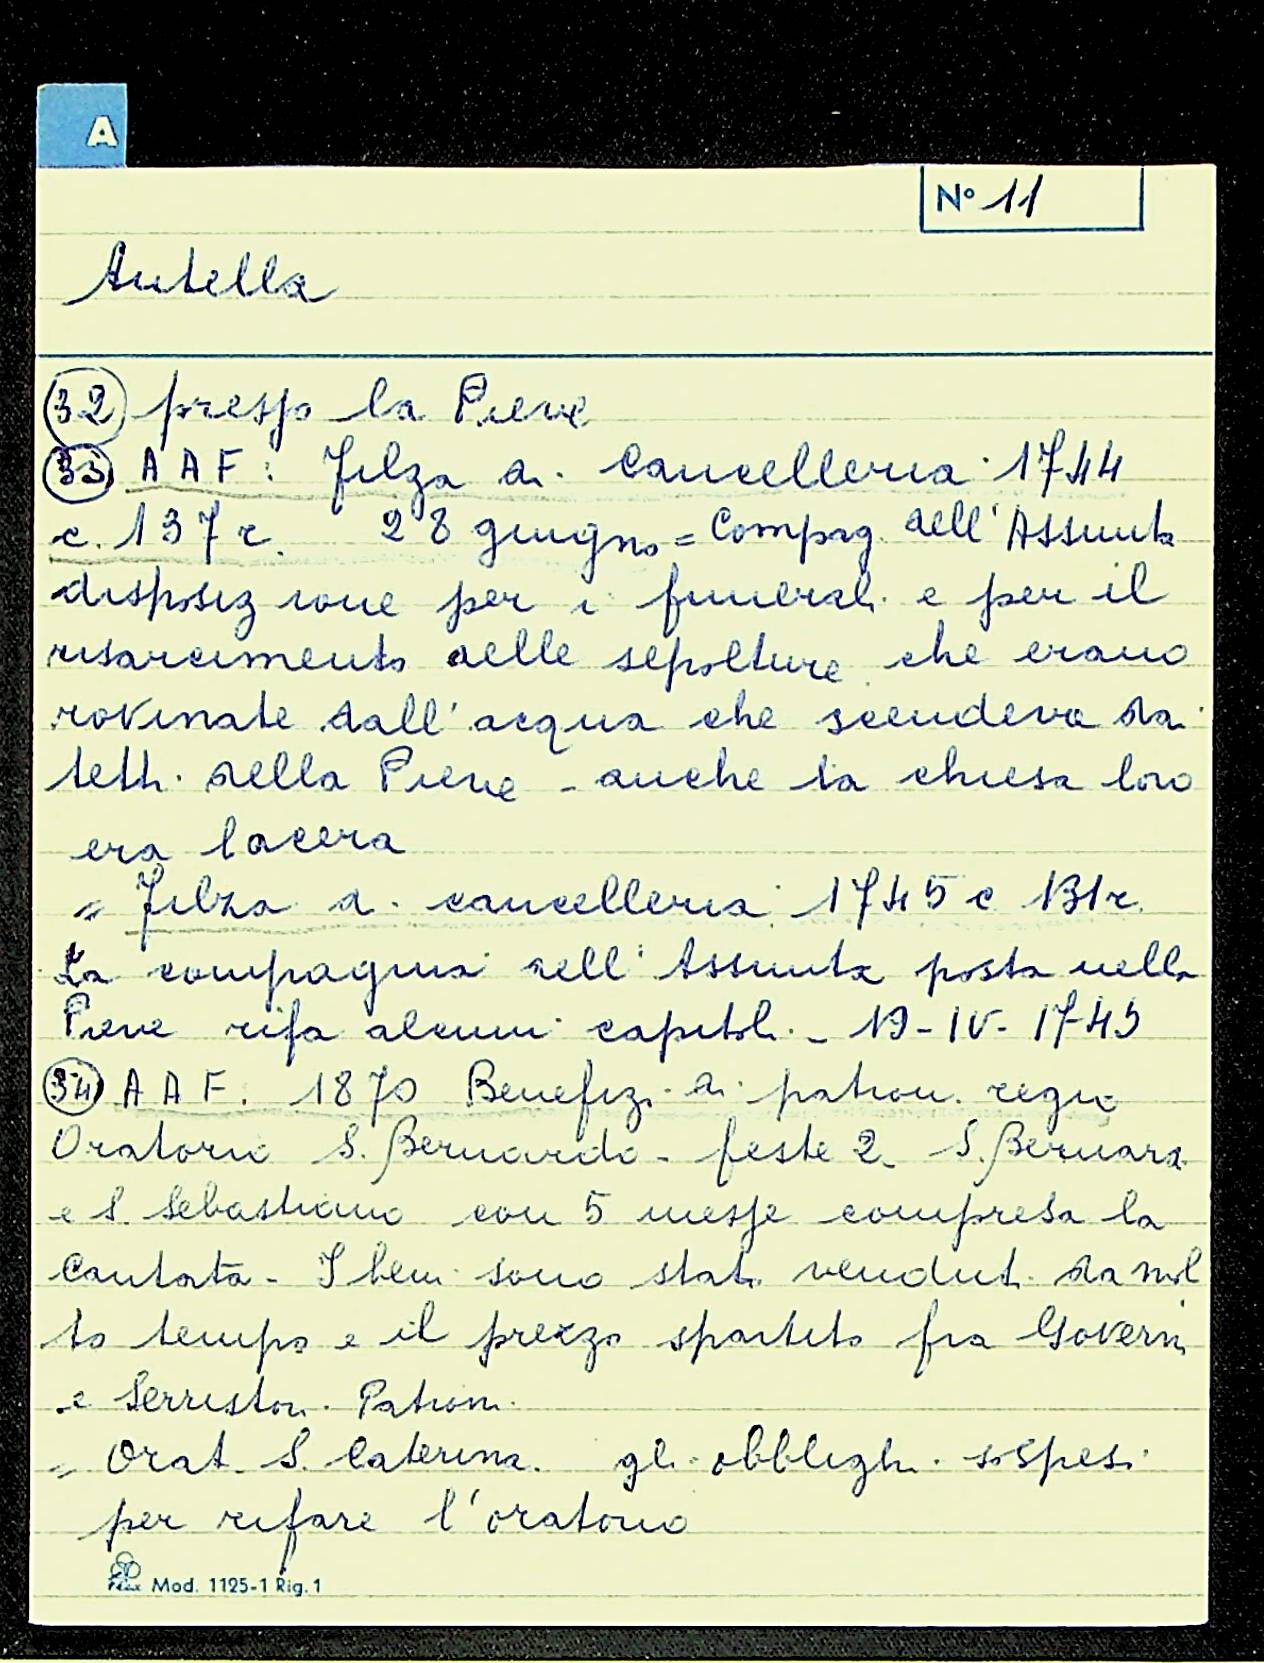 A
N° 11
Antella
32 presso la Pieve
33 AAF: Filza di Cancelleria 1744
c. 137 r. 28 giugno = Compag. dell'Assunta
disposizione per i funerali e per il
risarcimento delle sepolture che erano
rovinate dall'acqua che scendeva dai
tetti della Pieve - anche la chiesa loro
era lacera
" Filza di cancelleria 1745 c 131r.
La compagnia dell'Assunta posta nella
Pieve rifà alcuni capitoli - 19-IV-1745
34 AAF. 1870 Benefizi di patron. regio
Oratorio S. Bernardo - feste 2 S. Bernardo
e S. Sebastiano con 5 messe compresa la
Cantata - I beni sono stati venduti da mol
to tempo e il prezzo spartito fra Governi
e Serristori Patroni
" Orat. S. Caterina. gli obblighi sospesi
per rifare l'oratorio
Mod. 1125-1 Rig. 1